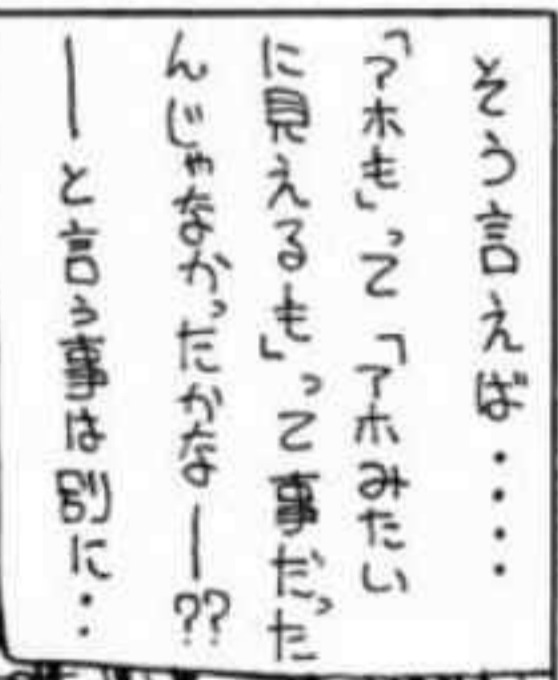 そう言えば・・・・
「アホも」って「アホみたい
に見えるも」って事だった
んじゃなかったかなー??
——と言う事は別に・・